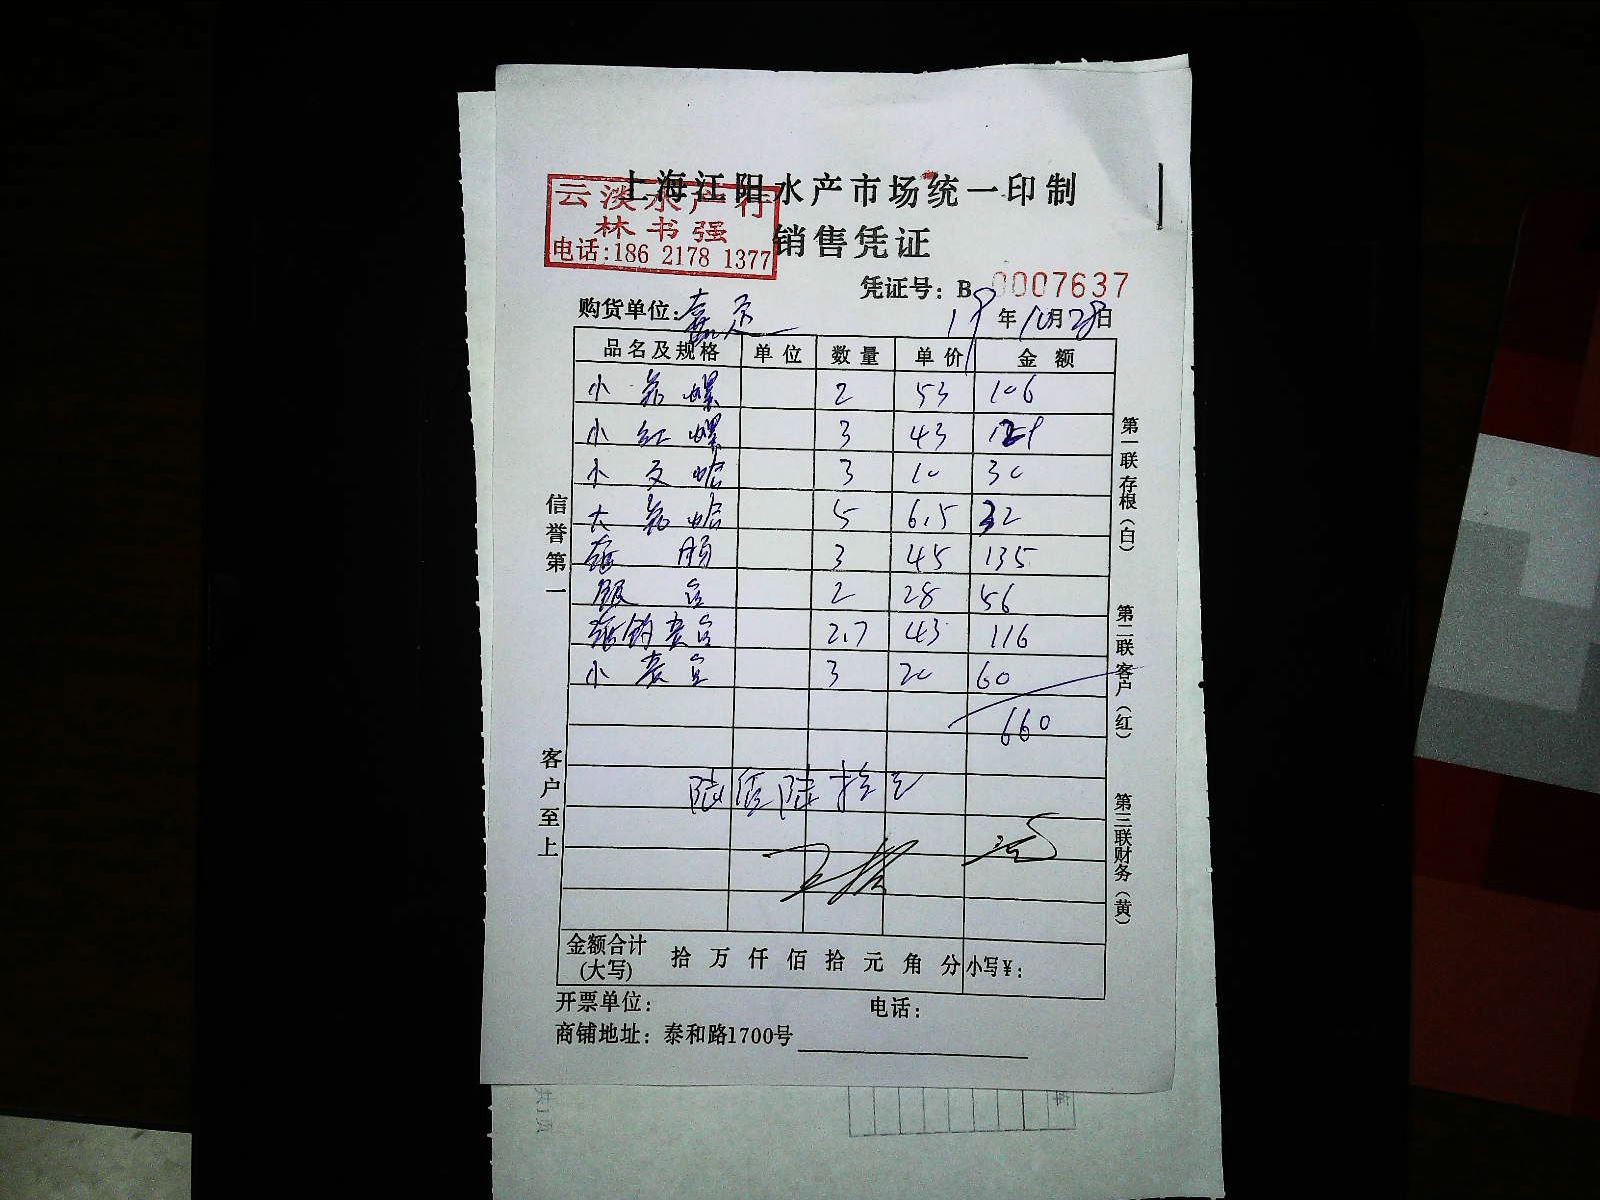 上海江阳水产市场统一印制
云淡水产行
林书强
电话:186 2178 1377
销售凭证
凭证号：B 0007637
购货单位：
19年10月28日
品名及规格 单位 数量 单价 金额
小 螺 2 53 106
小红螺 3 43 129
小 3 10 30
大 5 6.5 32
3 45 135
2 28 56
2.7 43 116
小 3 20 60
660
陆佰陆拾元
金额合计(大写) 拾 万 仟 佰 拾 元 角 分 小写¥：
开票单位： 电话：
商铺地址：泰和路1700号
信誉第一
客户至上
第一联存根（白）
第二联客户（红）
第三联财务（黄）
共1页